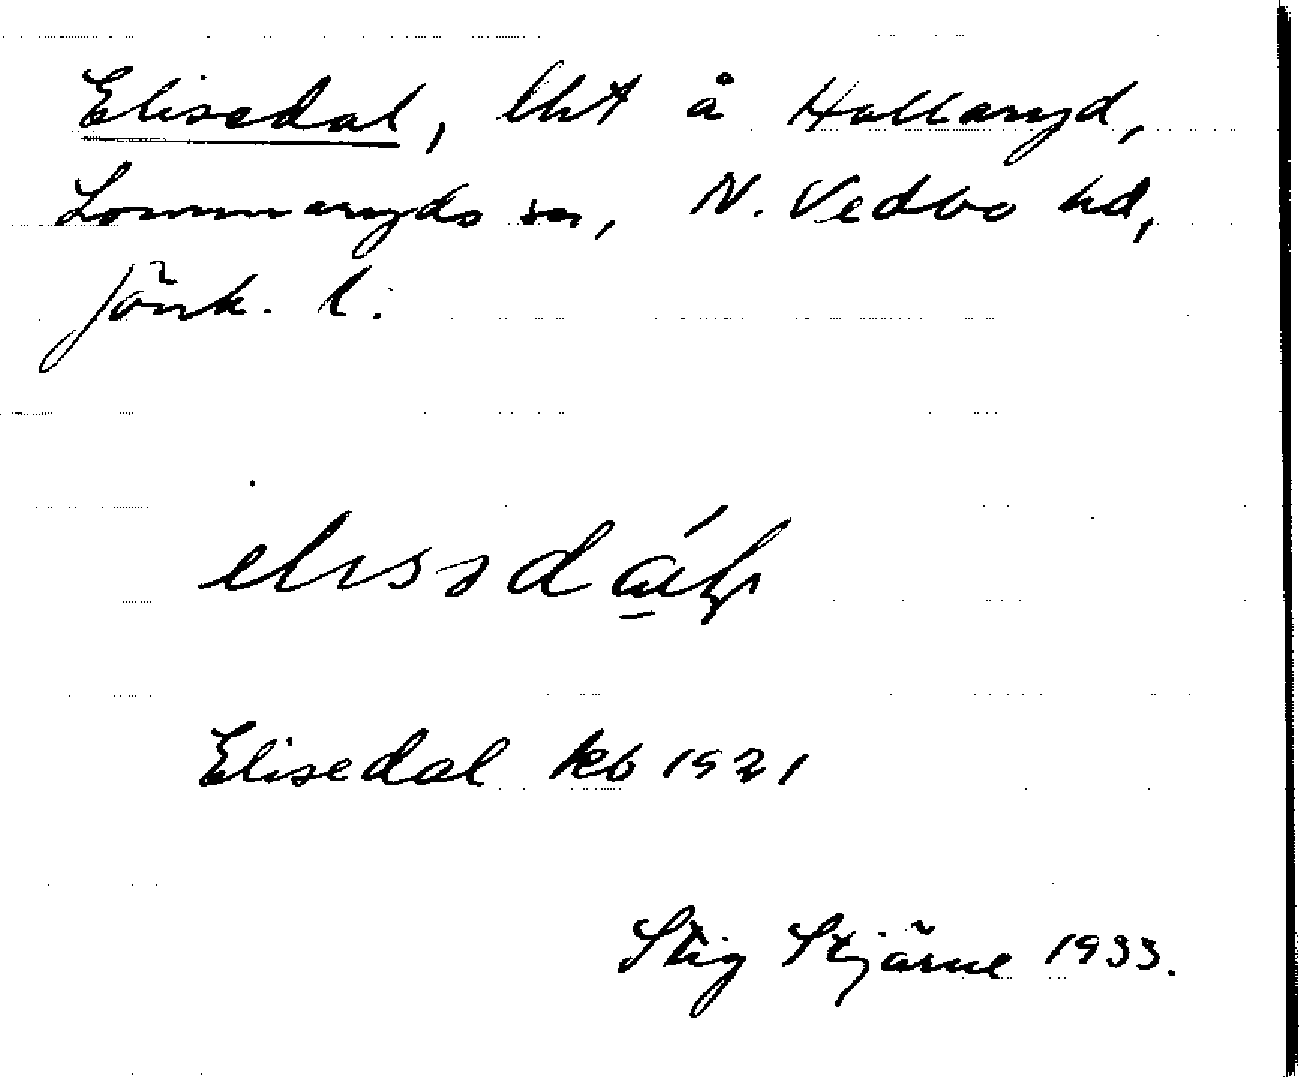 Elisedal, lht å Hallaryd,
Lommaryds sn, N. Vedbo hd,
Jönk. l.
elisədál
Elisedal kb 1921
Stig Stjärne 1933.